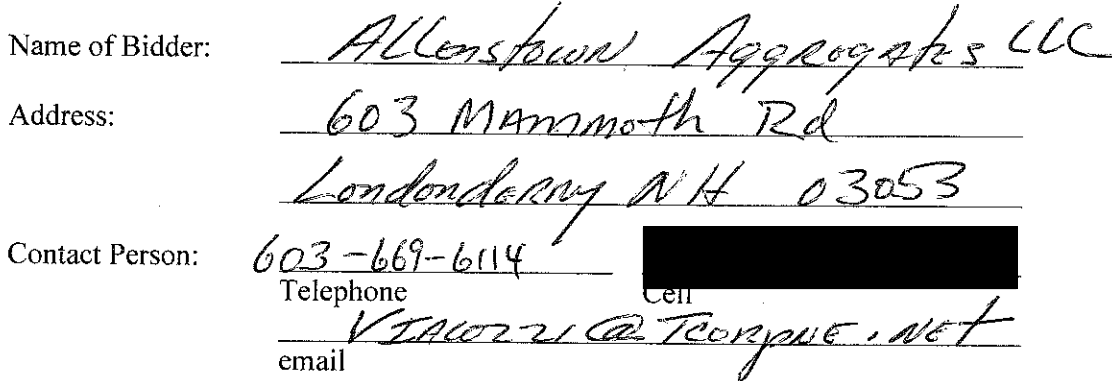 Name of Bidder: Allenstown Aggregates LLC
Address: 603 Mammoth Rd
Londonderry NH 03053
Contact Person: 603-669-6114
Telephone Cell
VIACOZZI@TCORPNE.NET
email